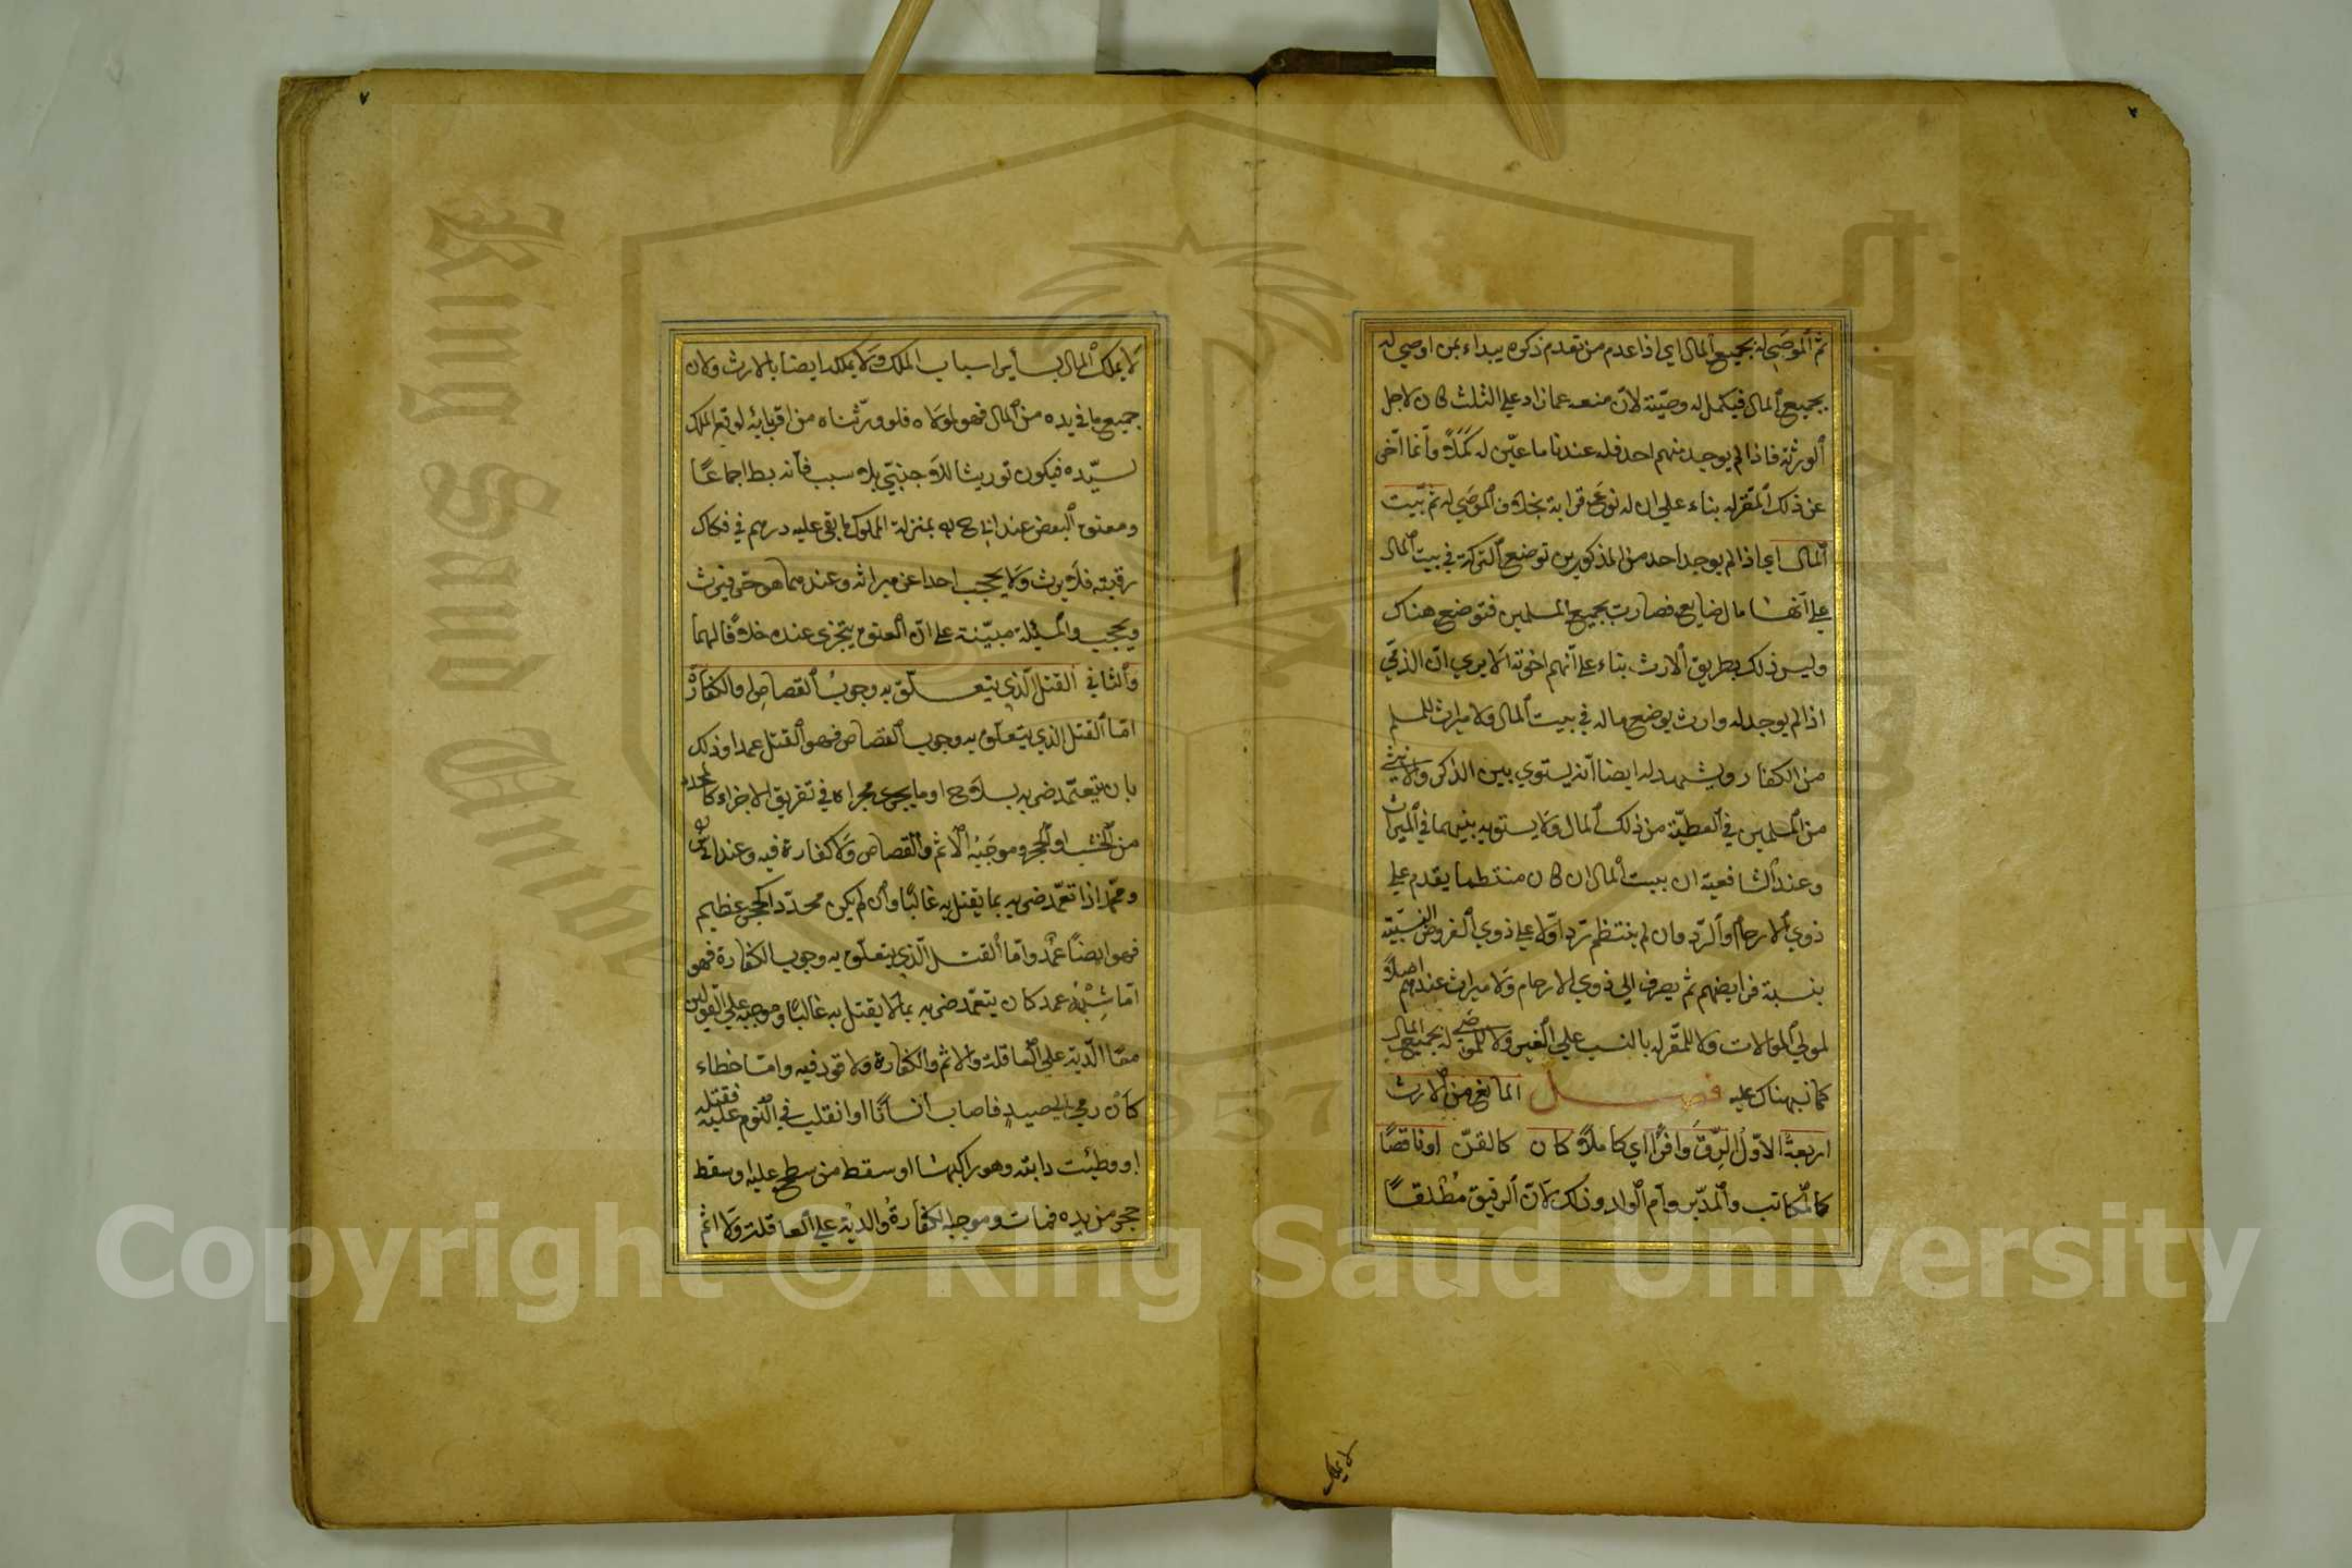 ٧
ثم الموصي له بجميع المال اي اذا عدم من تقدم ذكره يبداء بمن اوصي له
بجميع المال فيكمل له وصيته لان منعه عما زاد علي الثلث كان لاجل
الورثة فاذا لم يوجد منهم احد فله عندنا ما عيّن له كَمَلًا وانما اخّر
عن ذلك المقر له بناء علي ان له نوع قرابة بخلاف الموصي له ثم بيت
المال اي اذا لم يوجد احد من المذكورين توضع التركة في بيت المال
علي انها مال ضايع فصارت بجميع المسلمين فتوضع هناك
وليس ذلك بطريق الارث بناء علي انهم اخوته الا يري ان الذمي
اذا لم يوجد له وارث يوضع ماله في بيت المال ولا ميراث للمسلم
من الكفار ويشهد له ايضا انه يستوي بين الذكر والانثي
من المسلمين في العطيّة من ذلك المال ولا يستويه بينهما في الميراث
وعند الشافعية ان بيت المال ان كان منتظما يقدم علي
ذوي الارحام والرد وان لم ينتظم ترد اوّلا علي ذوي الفروض النسبيّة
بنسبة فرايضهم ثم يصرف الي ذوي الارحام ولا ميراث عندهم اصلًا
لمولي الموالات ولا للمقر له بالنسب علي الغير ولا للموصَي له بجميع المال
كما نبهناك عليه فصل المانع من الارث
اربعة الاوّل الرِّقّ وافرًا اي كاملًا كان كالقنّ اوناقصًا
كالمكاتب والمدبّر وام الولد وذلك لان الرقيق مُطْلقًا
لا يملك
٧
لا يملك المال بسأير اسباب الملك ولا يملكه ايضا بالارث ولان
جميع ما في يده من المال فهو لمولاه فلو ورّثناه من اقربائه لوقع الملك
لسيّده فيكون توريثا للاجنبيّ بلا سبب فأنه بط اجماعًا
ومعتق البعض عند ابي ح به بمنزلة المملوك ما بقي عليه درهم في فكاك
رقبته فلا يرث ولا يحجب احدا عن ميراثه وعندهما هو حر فيرث
ويحجب والمسئلة مبيّنة علي ان العتق يتجزي عنده خلافا لهما
والثاني القتل الّذي يتعلّق به وجوبُ القصاص او الكفارة
امّا القتل الذي يتعلّق به وجوب القصاص فهو القتل عمدا وذلك
بان يتعمّد ضربه بسلاح او ما يجري مجراه في تفريق الاجزاء كالمحدد
من الخشب او الحجر وموجَبُه الاثم والقصاص ولا كفارة فيه وعند ابي يوسف
ومحمّد اذا تعمّد ضربه بما يقتل به غالبًا وان لم يكن محدّدا كحجر عظيم
فهو ايضًا عمد وامّا القتل الّذي يتعلّق به وجوب الكفارة فهو
امّا شِبْهُ عمد كان يتعمّد ضربه بما لا يقتل به غالبًا وموجبه علي القولين
معًا الدّية علي العاقلة والاثم والكفارة ولا قود فيه وامّا خطاء
كان رمي الي صيدٍ فاصاب انسانًا او انقلب في النوم عليه فقتله
او وطئت دابته وهو راكبها او سقط من سطح عليه او سقط
حجر من يده فمات وموجبه الكفارة والدية علي العاقلة ولا اثم
Copyright © King Saud University